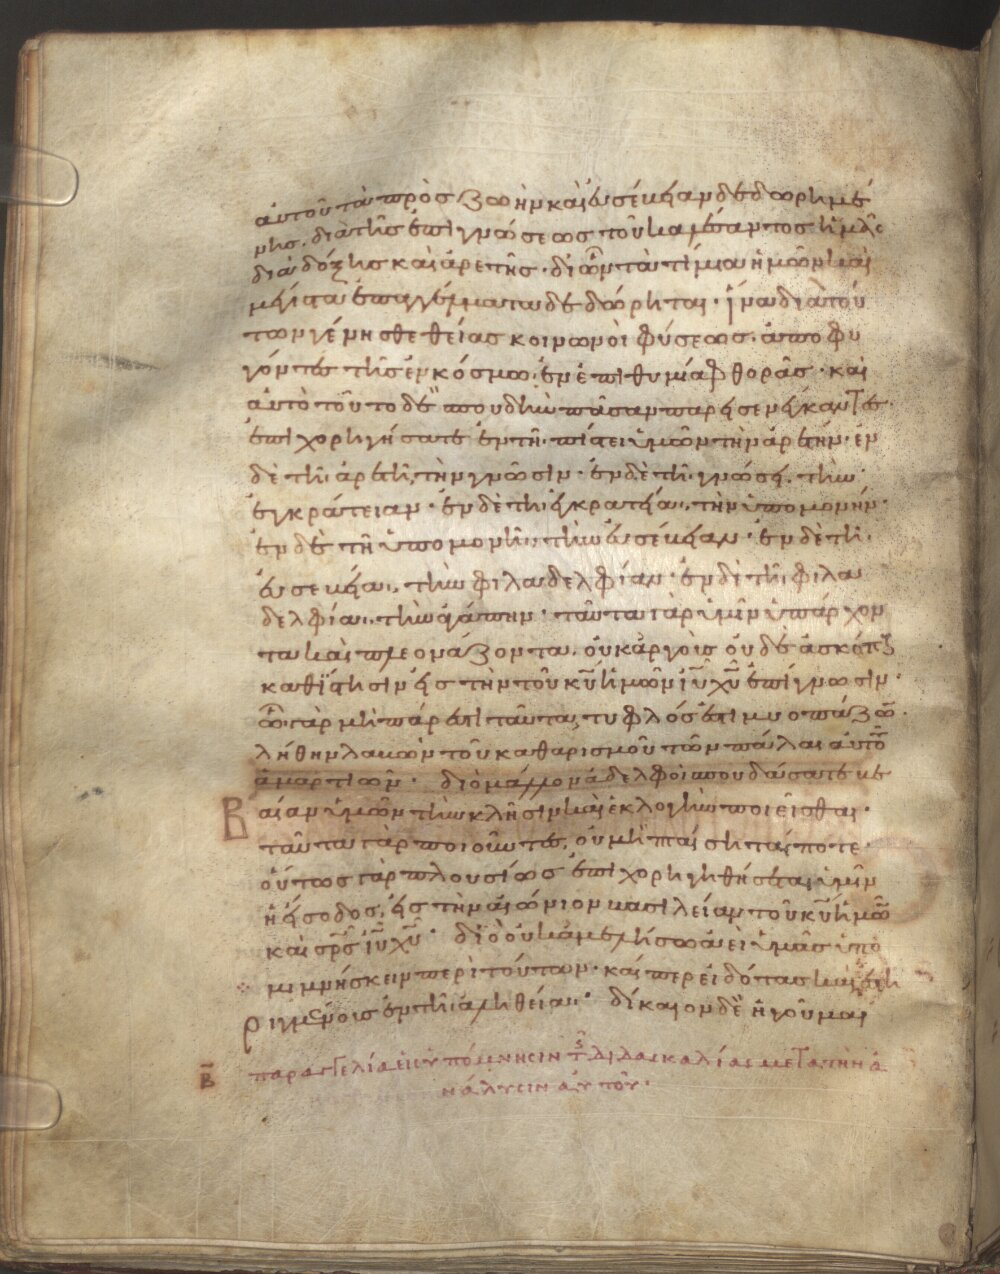 αὐτοῦ τὰ πρὸς ζωὴν καὶ εὐσέβειαν δεδωρημέ
νης. διὰ τῆς ἐπιγνώσεως τοῦ καλέσαντος ἡμᾶς
διὰ δόξης καὶ ἀρετῆς· δι' ὧν τὰ τίμια ἡμῶν καὶ
μέγιστα ἐπαγγέλματα δεδώρηται· ἵνα διὰ τού
των γένησθε θείας κοινωνοὶ φύσεως· ἀποφυ
γόντες τῆς ἐν κόσμω ἐν ἐπιθυμία φθορᾶς· καὶ
αὐτὸ τοῦτο δὲ σπουδὴν πᾶσαν παρεισενέγκαντες·
ἐπιχορηγήσατε ἐν τῆ πίστει ὑμῶν τὴν ἀρετήν· ἐν
δὲ τῆ ἀρετῆ, τὴν γνῶσιν· ἐν δὲ τῆ γνώσει, τὴν
ἐγκράτειαν· ἐν δὲ τῆ ἐγκρατεία, τὴν ὑπομονήν·
ἐν δὲ τῆ ὑπομονῆ, τὴν εὐσέβειαν· ἐν δὲ τῆ
εὐσεβεία, τὴν φιλαδελφίαν· ἐν δὲ τῆ φιλα
δελφία, τὴν ἀγάπην· ταῦτα γὰρ ὑμῖν ὑπάρχον
τα καὶ πλεονάζοντα, οὐκ ἀργοὺς οὐδὲ ἀκάρπους
καθίστησιν εἰς τὴν τοῦ κυ ἡμῶν ιυ χυ ἐπίγνωσιν·
ὧ γὰρ μὴ πάρεστι ταῦτα, τυφλός ἐστι μυοπάζων·
λήθην λαβὼν τοῦ καθαρισμοῦ τῶν πάλαι αὐτοῦ
ἁμαρτιῶν· διὸ μᾶλλον ἀδελφοὶ σπουδάσατε βε
βαίαν ὑμῶν τὴν κλῆσιν καὶ ἐκλογὴν ποιεῖσθαι·
ταῦτα γὰρ ποιοῦντες, οὐ μὴ πταίσητέ ποτε·
οὕτως γὰρ πλουσίως ἐπιχορηγηθήσεται ὑμῖν
ἡ εἴσοδος, εἰς τὴν αἰώνιον βασιλείαν τοῦ κυ ἡμῶν
καὶ σρς ιυ χυ· διὸ οὐκ ἀμελήσω ἀεὶ ὑμᾶς ὑπο
μιμνήσκειν περὶ τούτων· καίπερ εἰδότας καὶ ἐστη
ριγμένοις ἐν τῆ ἀληθεία· δίκαιον δὲ ἡγοῦμαι
β παραγγελία εἰς ὑπόμνησιν τῆς διδασκαλίας μετὰ τὴν ἀ
νάλυσιν αὐτοῦ·